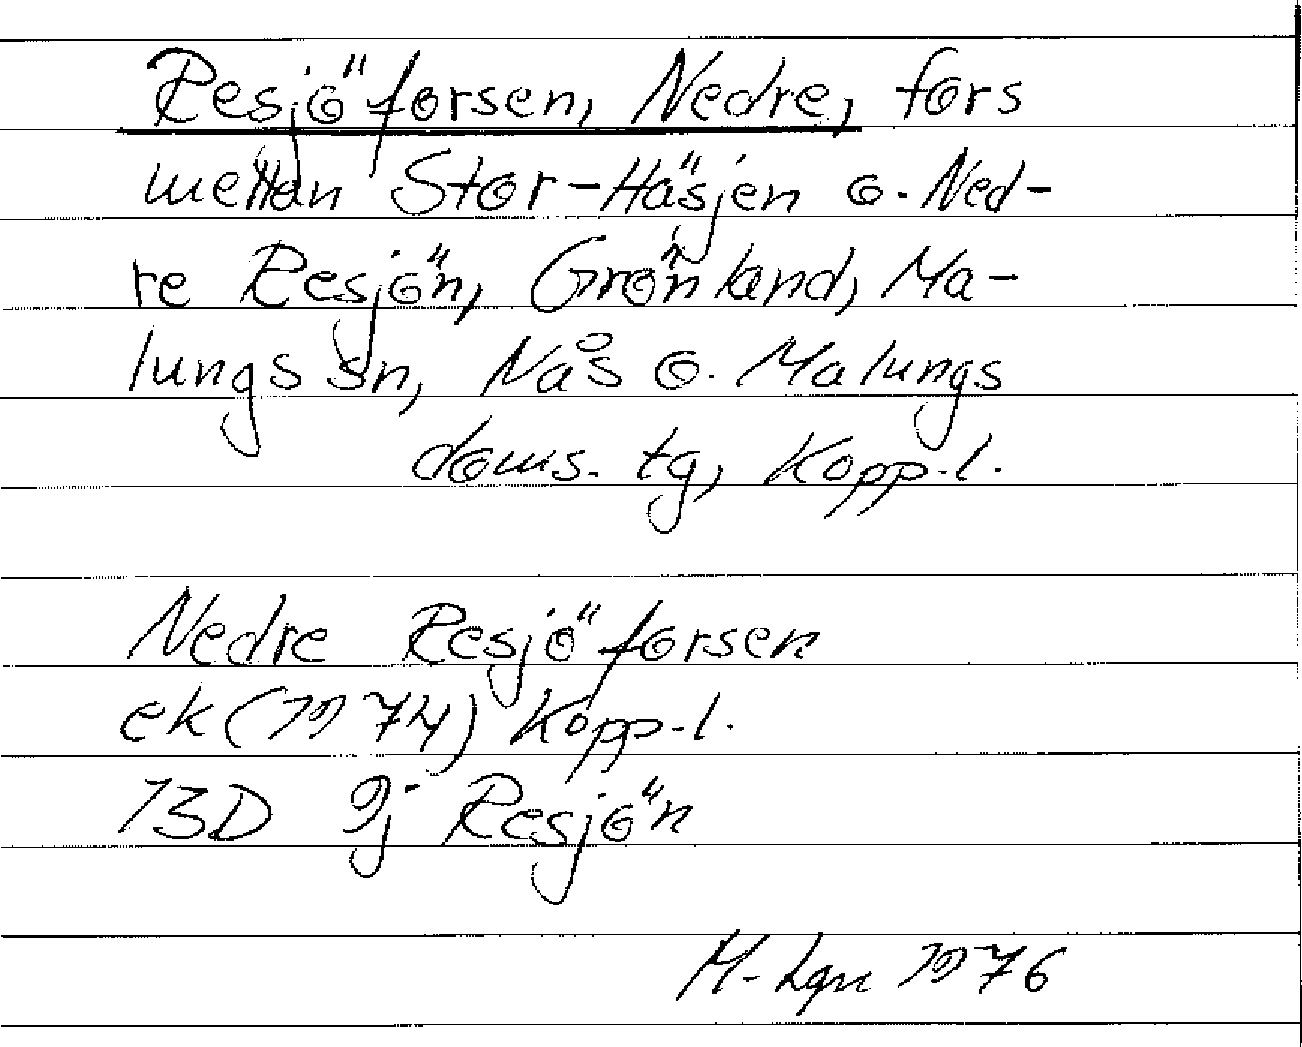 Resjöforsen, Nedre, fors
mellan Stor-Häsjen o. Ned-
re Resjön, Grönland, Ma-
lungs sn, Nås o. Malungs
doms. tg, Kopp.l.
Nedre Resjöforsen
ek (1974) Kopp.l.
13D 9j Resjön
M-Lgn 1976